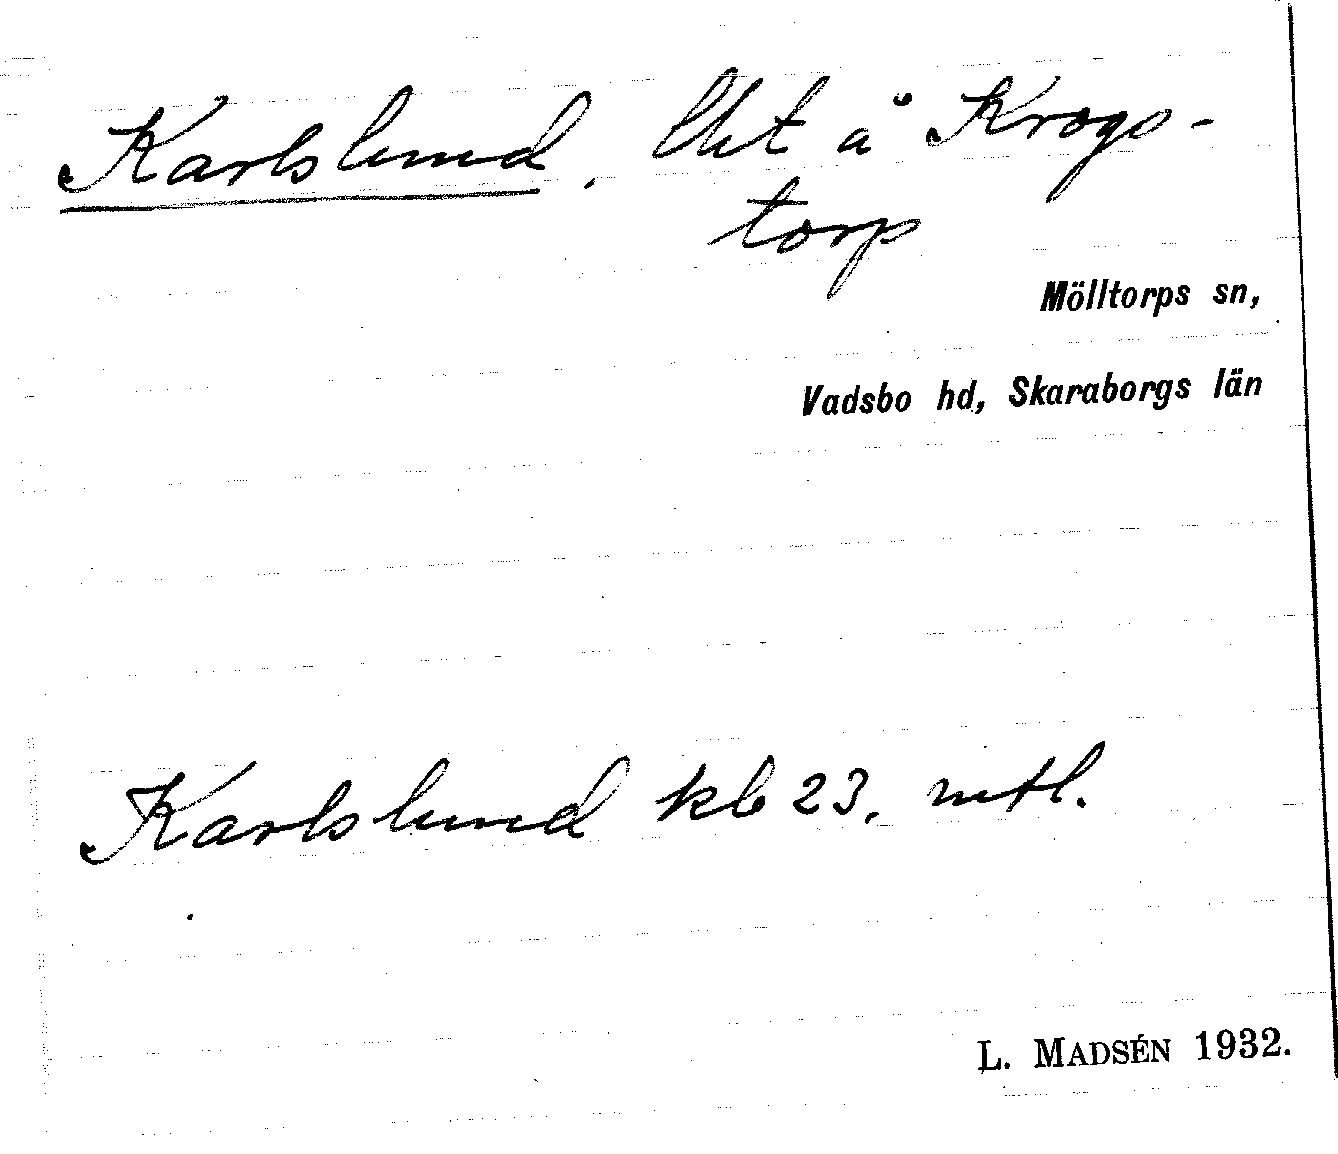 Karlslund, lht å Krogs-
torp
Mölltorps sn,
Vadsbo hd, Skaraborgs län
Karlslund kb 23. mtl.
L. MADSÉN 1932.